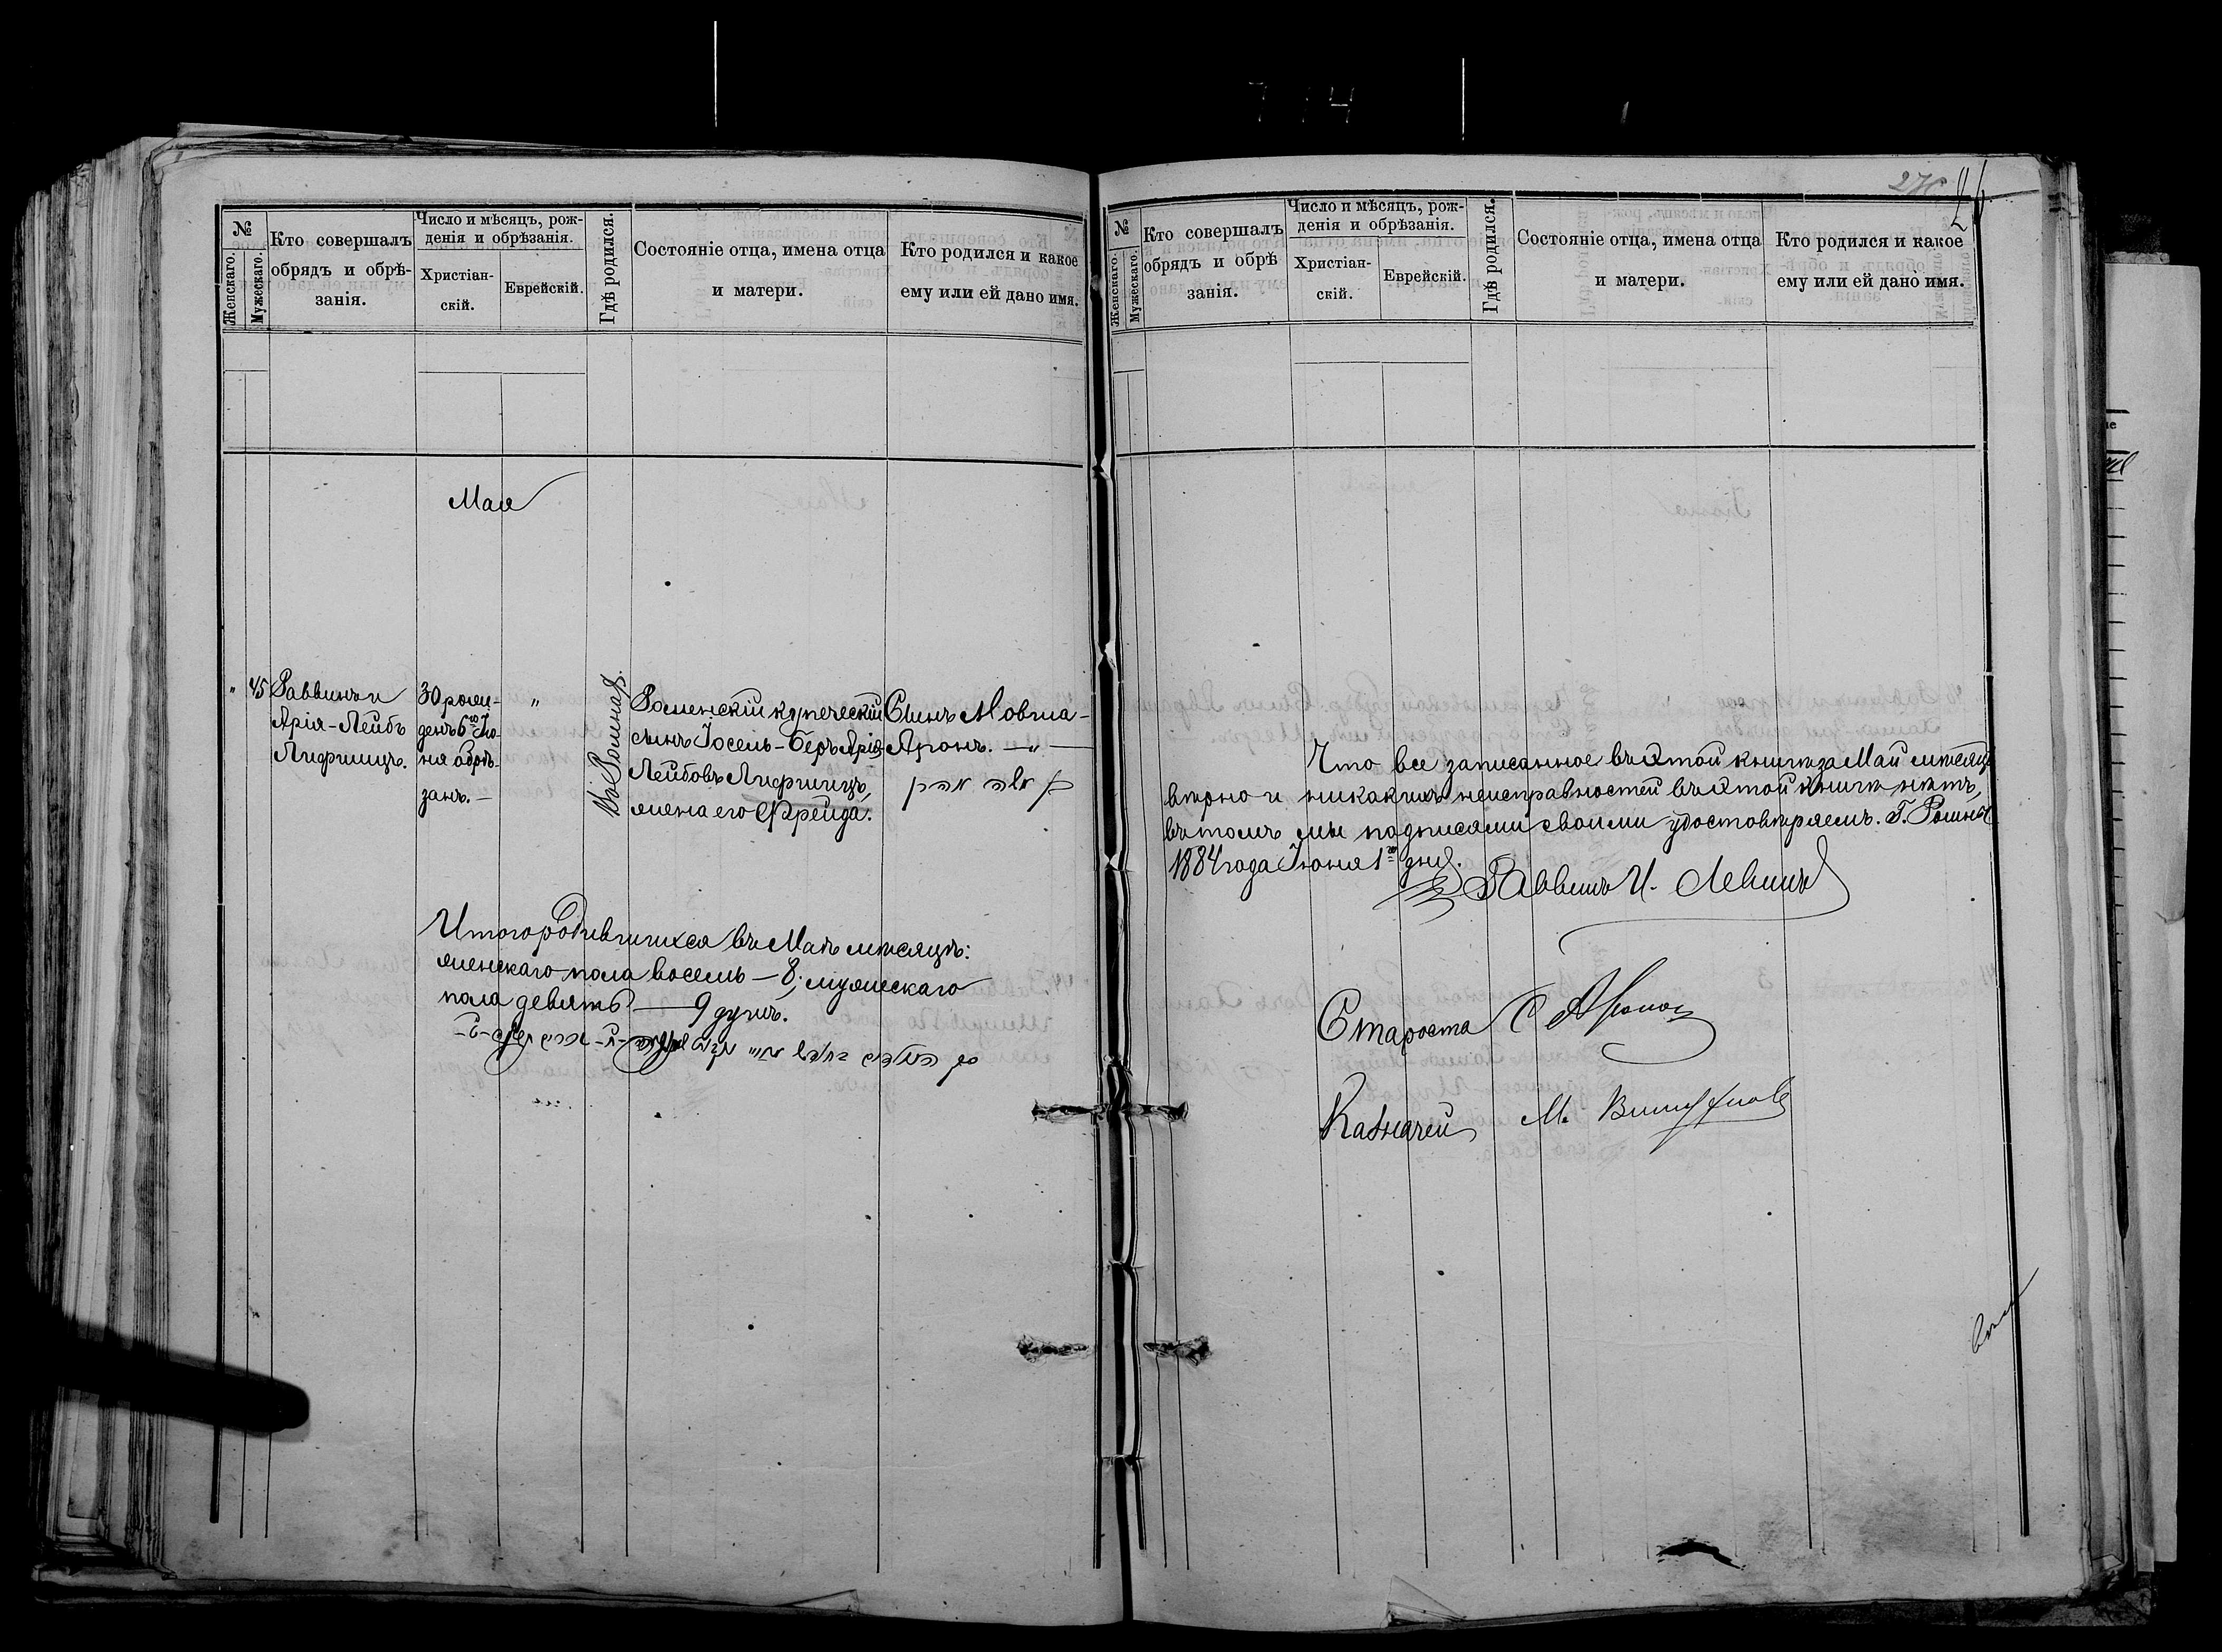 №
Женскаго.
Мужескаго.
Кто совершалъ
обрядъ и обрѣ-
занія.
Число и мѣсяцъ, рож-
денія и обрѣзанія.
Христіан-
скій.
Еврейскій.
Гдѣ родился.
Состояніе отца, имена отца
и матери.
Кто родился и какое
ему или ей дано имя.
Мая
" 45
Раввинъ и
Арія-Лейбъ
Лифшицъ.
30 рожд-
денъ 6го Iю-
ня обрѣ-
занъ.—
"
Въ г. Ромнахъ.
Роменскій купеческій
сынъ Іосель-Беръ Арія
Лейбовъ Лифшицъ,
жена его Фрейда.
Сынъ Мовша-
Аронъ. —"—
בן משה אהרן
Итого родившихся въ Маѣ мѣсяцѣ:
женскаго пола восемь — 8; мужескаго
пола девять — 9 душъ.
№
Женскаго.
Мужескаго.
Кто совершалъ
обрядъ и обрѣ
занія.
Число и мѣсяцъ, рож-
денія и обрѣзанія.
Христіан-
скій.
Еврейскій.
Гдѣ родился.
Состояніе отца, имена отца
и матери.
Кто родился и какое
ему или ей дано имя.
Что все записанное въ этой книгѣ за Май мѣсяцъ
вѣрно и никакихъ неисправностей въ этой книгѣ нѣтъ,
въ томъ мы подписями своими удостовѣряемъ. Г. Ромны
1884 года Іюня 1го дня.
Раввинъ И. Левинъ
Староста С
Казначей М.